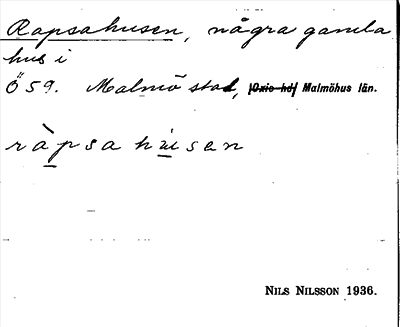 Rapsahusen, några gamla
hus i
Ö 59. Malmö stad, Oxie hd Malmöhus län.
ràpsahùsen
NILS NILSSON 1936.